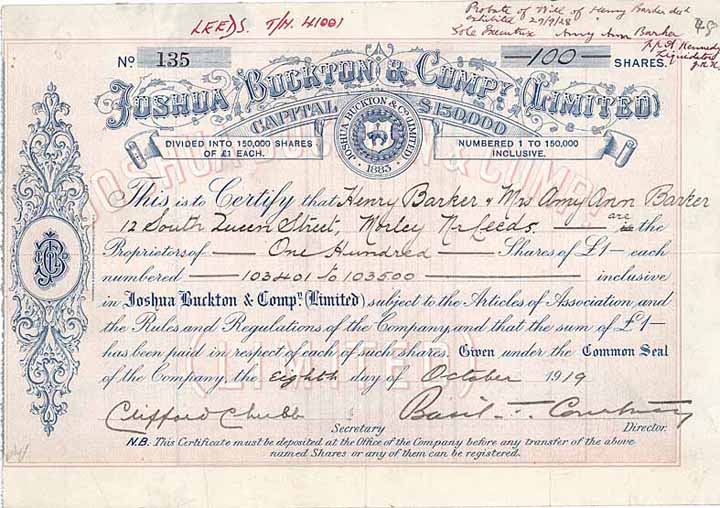 LEEDS. T/H. 41001
Probate of Will of Henry Barker decd
exhibited 27/9/28
Sole Executrix Amy Ann Barker
p.p. A Kennedy
Liquidator
Nº 135
—100— SHARES.
JOSHUA BUCKTON & COMPY. (LIMITED)
CAPITAL £150,000
DIVIDED INTO 150,000 SHARES
OF £1 EACH.
JOSHUA BUCKTON & CO LIMITED.
1883
NUMBERED 1 TO 150,000
INCLUSIVE.
This is to Certify that Henry Barker & Mrs Amy Ann Barker
12 South Queen Street, Morley Nr Leeds. — are is the
Proprietors of — One Hundred — Shares of £1— each
numbered — 103401 to 103500 — inclusive
in Joshua Buckton & Compy. (Limited) subject to the Articles of Association and
the Rules and Regulations of the Company and that the sum of £1—
has been paid in respect of each of such shares. Given under the Common Seal
of the Company, the Eighth day of October 1919
Clifford Chubb Basil T. Courtney
Secretary Director.
N.B. This Certificate must be deposited at the Office of the Company before any transfer of the above
named Shares or any of them can be registered.
JOSHUA BUCKTON & COMPY.
(LIMITED)